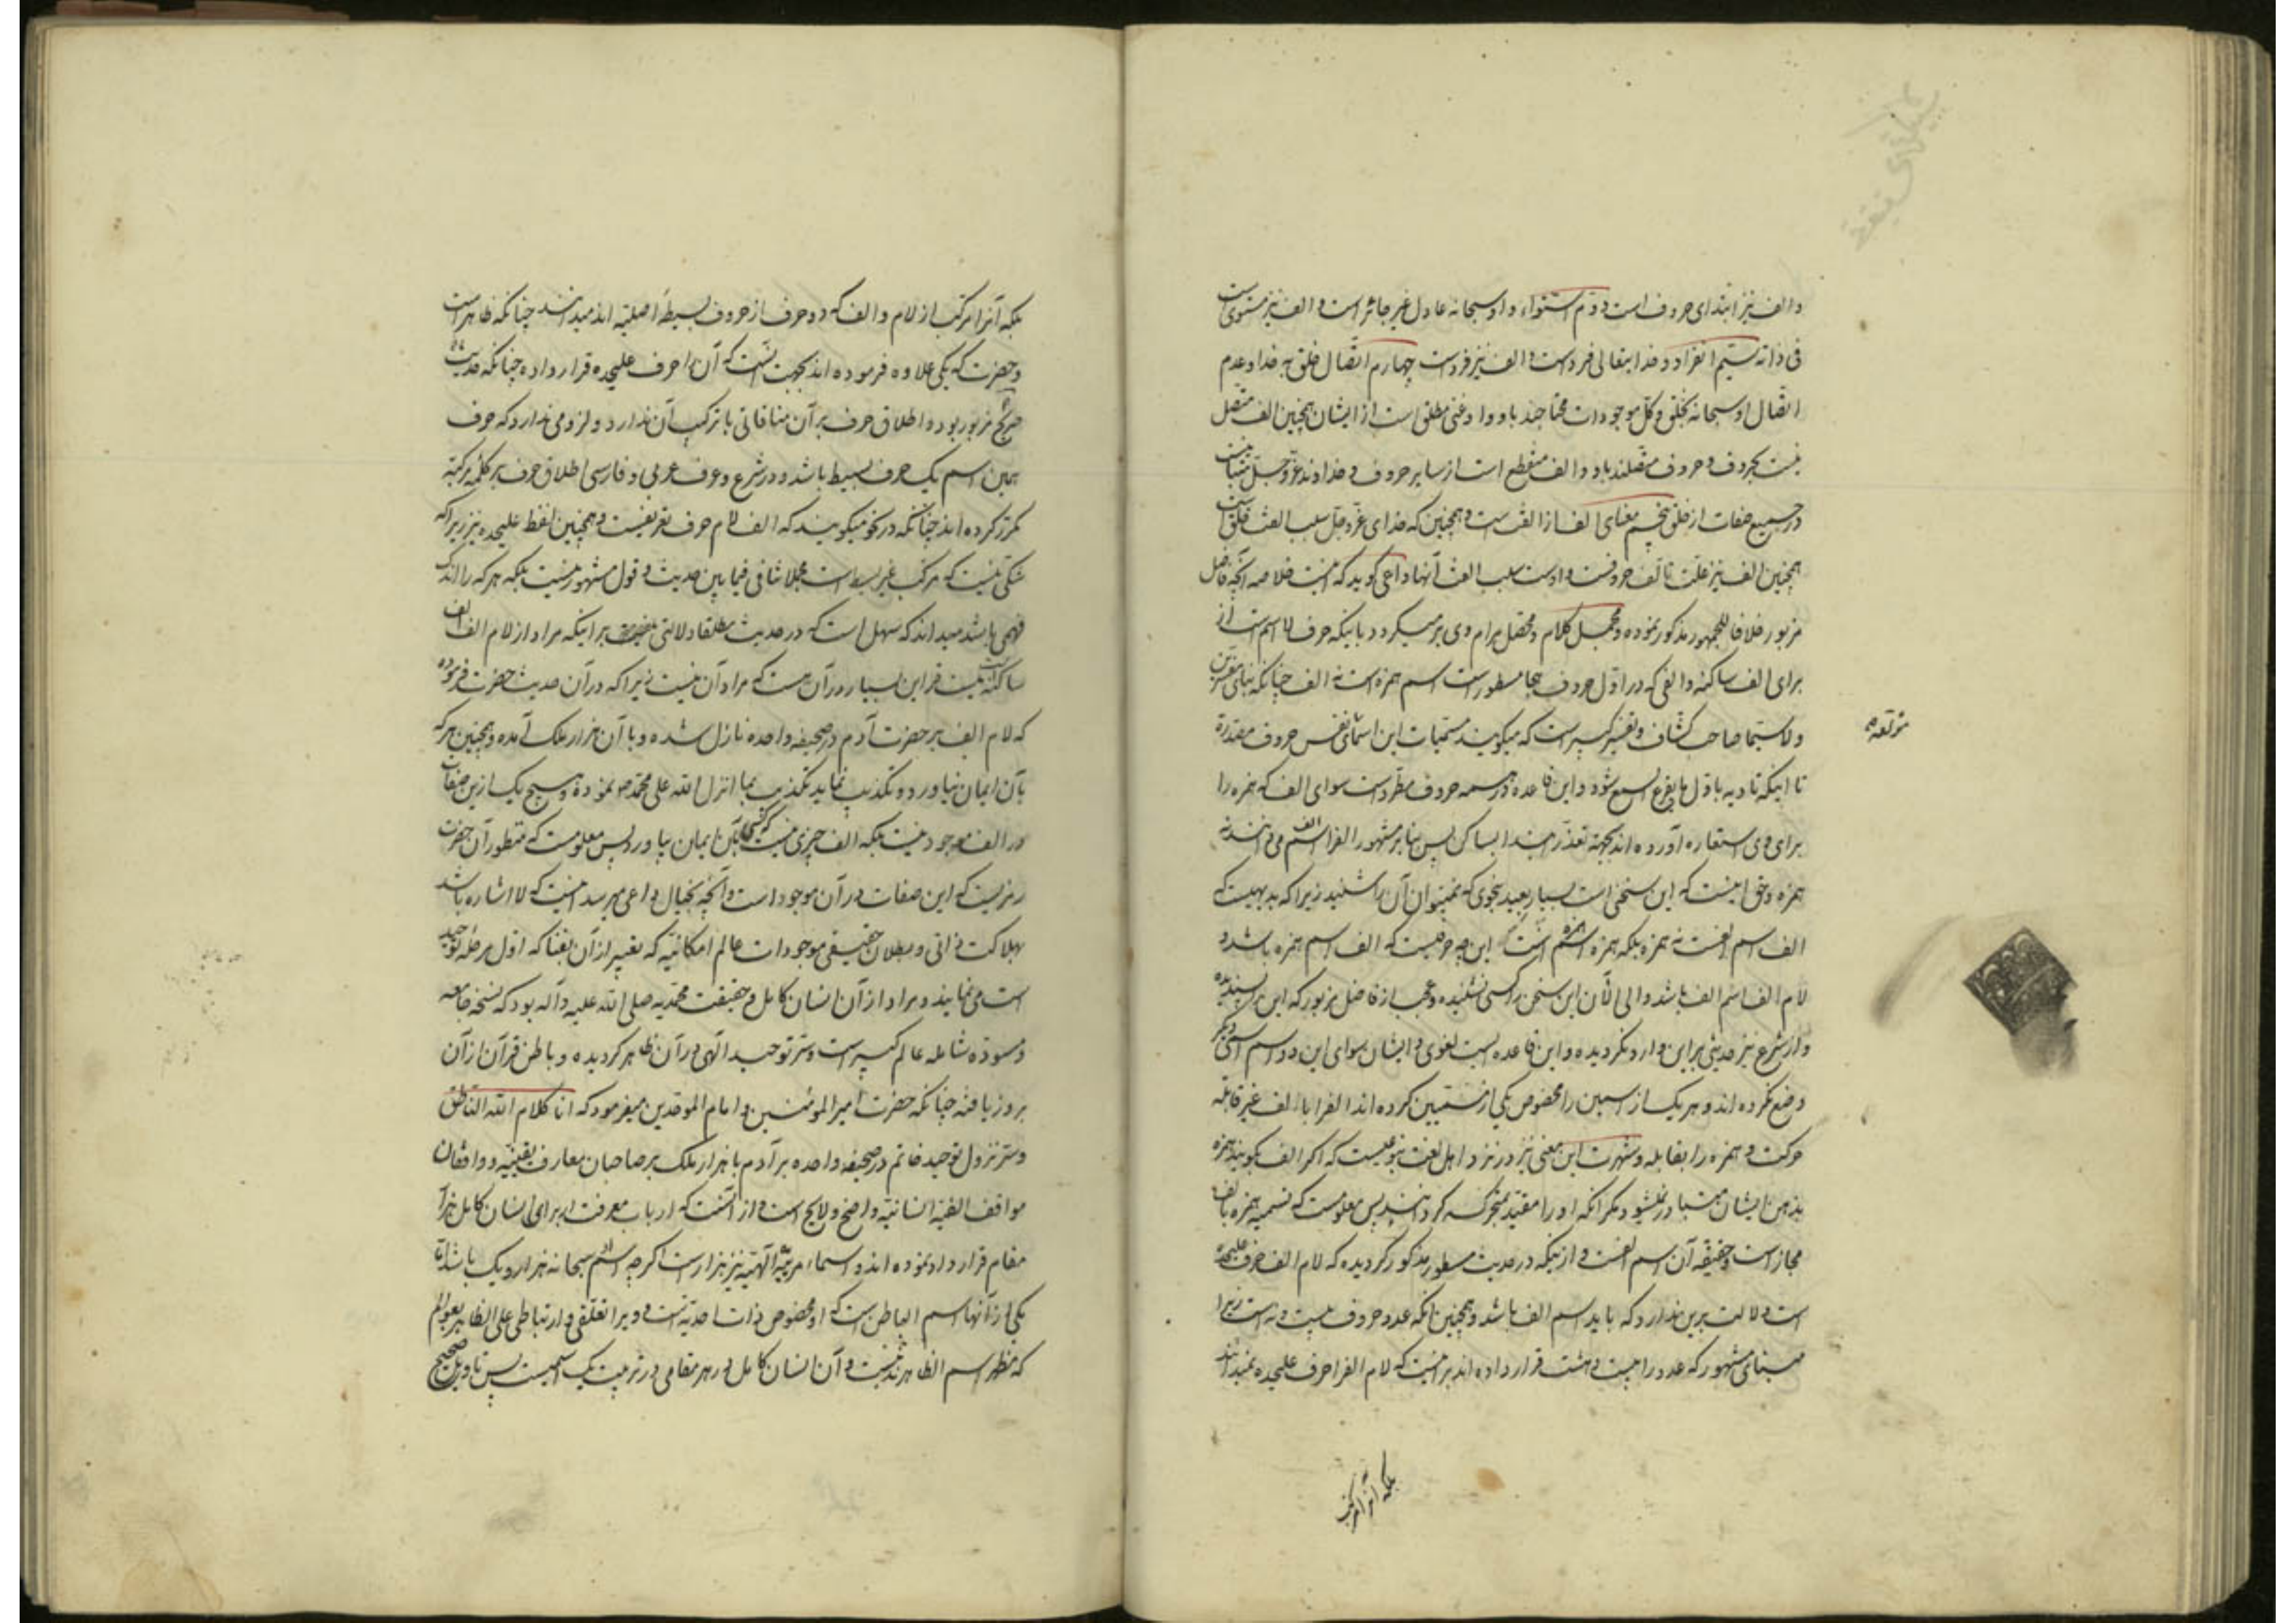 والف نیز ابتدای حروف است دوم استواء و او سبحانه عادل غیر جائر است و الف نیز مستوی است
فی ذاته سیم انفراد و خدایتعالی فرد است و الف نیز فرد است چهارم اتصال خلق به خدا و عدم
اتصال او سبحانه بخلق و کل موجودات محتاجند باو و او غنی مطلق است از ایشان همچنین الف متصل
نیست بحروف و حروف متصلند باو و الف منقطع است از سایر حروف و خداوند عز و جل مباین است
در جمیع صفات از خلق پنجم معنای الف از الفت است و همچنین که خدای عز و جل سبب الفت خلق است
همچنین الف نیز علت تألف حروفست و اوست سبب الفت آنها داعی گوید که اینست خلاصه آنچه فاضل
مزبور خلافا للجمهور مذکور نموده و مجمل کلام و محصل مرام وی برمیگردد باینکه حرف لا اسم است از
برای الف ساکنه و الفی که در اول حروف هجا مسطور است اسم همزه است نه الف چنانکه بنای مفسرین
ولا سیما صاحب کشاف و تفسیر کبیر است که میگویند مسمیات این اسمای نفس حروف مقدرة
تا اینکه تادیه باول ما یقرع السمع شود و این قاعده در همه حروف مطرد است سوای الف که همزه را
برای وی استعاره آورده اند بجهة تعذر ابتدا بساکن پس بنابر مشهور الف را اسم الف می دانند نه
همزه و حق اینست که این سخنی است بسیار بعید بنحوی که نمیتوان آن را شنید زیرا که بدیهیست که
الف اسم الفست نه همزه بلکه همزه اسم همزه است این چه حرفیست که الف اسم همزه باشد و
لام الف اسم الف باشد و الی الآن این سخن را کسی نشنیده و عجب از فاضل مزبور که این را پسندیده
و از شرع نیز حدیثی بر این وارد نگردیده و این قاعده ایست لغوی و ایشان سوای این دو اسم اسمی دیگر
وضع نکرده اند و هر یک از اسمین را مخصوص یکی از مسمیین کرده اند الف را با الف غیر قابله
حرکت و همزه را بقابله و شهرت این معنی نیز در نزد اهل لغت بنوعیست که اگر الف گویند همزه
بذهن ایشان متبادر نمیشود مگر آنکه او را مقید بمتحرکه گردانند پس معلومست که تسمیه همزه بالف
مجاز است و حقیقة آن اسم الفست و از اینکه در حدیث مسطور مذکور گردیده که لام الف حرف علیحده
است دلالت برین ندارد که باید اسم الف باشد و همچنین آنکه عدد حروف بیست و نه است زیرا
مبنای مشهور که عدد را بیست و هشت قرار داده اند بر اینست که لام الف را حرف علیحده نمیدانند
بلکه آنرا مرکب
بلکه آنرا مرکب از لام و الف که دو حرف از حروف بسیطهٔ اصلیه اند میدانند چنانکه ظاهر است
و حضرت که یکی علاوه فرموده اند بجهت آنست که آن را حرف علیحده قرار داده چنانکه حدیث
صریح مزبور بوده و اطلاق حرف بر آن منافاتی با ترکیب آن ندارد و لزومی ندارد که حرف
همین اسم یک حرف بسیط باشد و در شرع و عرف عربی و فارسی اطلاق حرف بر کلمهٔ مرکبه
مکرر کرده اند چنانکه در نحو میگویند که الف لام حرف تعریفست و همچنین لفظ علیحده نیز زیرا که
شکی نیست که مرکب غیر بسیط است مجملا تنافی فیما بین حدیث و قول مشهور نیست بلکه هر که را اندک
فهمی باشد میداند که سهل است که در حدیث مطلقا دلالتی نیست بر اینکه مراد از لام الف الف
ساکنه است نیست قراین بسیار در آن هست که مراد آن نیست زیرا که در آن حدیث حضرت فرموده
که لام الف بر حضرت آدم در صحیفه واحده نازل شده و با آن هزار ملک آمده و همچنین هر که
بآن ایمان نیاورد و تکذیب نماید تکذیب بما انزل الله علی محمد ص نموده و هیچ یک ازین صفات
در الف موجود نیست بلکه الف چیزی نیست که کسی بآن ایمان بیاورد پس معلومست که منظور آن حضرت
رمزیست که این صفات در آن موجود است و آنچه بخیال داعی میرسد اینست که لا اشاره باشد
بهلاکت ذاتی و بطلان حقیقی موجودات عالم امکانیه که تعبیر از آن بفنا که اول مرحله توحید
است می نمایند و مراد از آن انسان کامل و حقیقت محمدیه صلی الله علیه و آله بود که نسخه جامعه
و مسوده شامله عالم کبیر است و سر توحید الهی در آن ظاهر گردیده و باطن قرآن از آن
بروز یافته چنانکه حضرت امیر المومنین و امام الموحدین میفرمود که انا کلام الله الناطق
و سر نزول توحید خاتم در صحیفه واحده بر آدم با هزار ملک بر صاحبان معارف یقینیه و واقفان
مواقف الفیه انسانیه واضح و لایح است و از آنست که ارباب معرفت از برای انسان کامل هزار
مقام قرار داد نموده اند و اسماء مربیهٔ الهیه نیز هزار است اگر چه اسم او سبحانه هزار و یک باشد اما
یکی از آنها اسم الباطن است که او مخصوص ذات احدیه است و ویرا تعلقی و ارتباطی علی الظاهر بعوالم
که مظهر اسم الظاهرند نیست و آن انسان کامل در هر مقامی در تربیت یک اسمیست پس تاویل صحیح